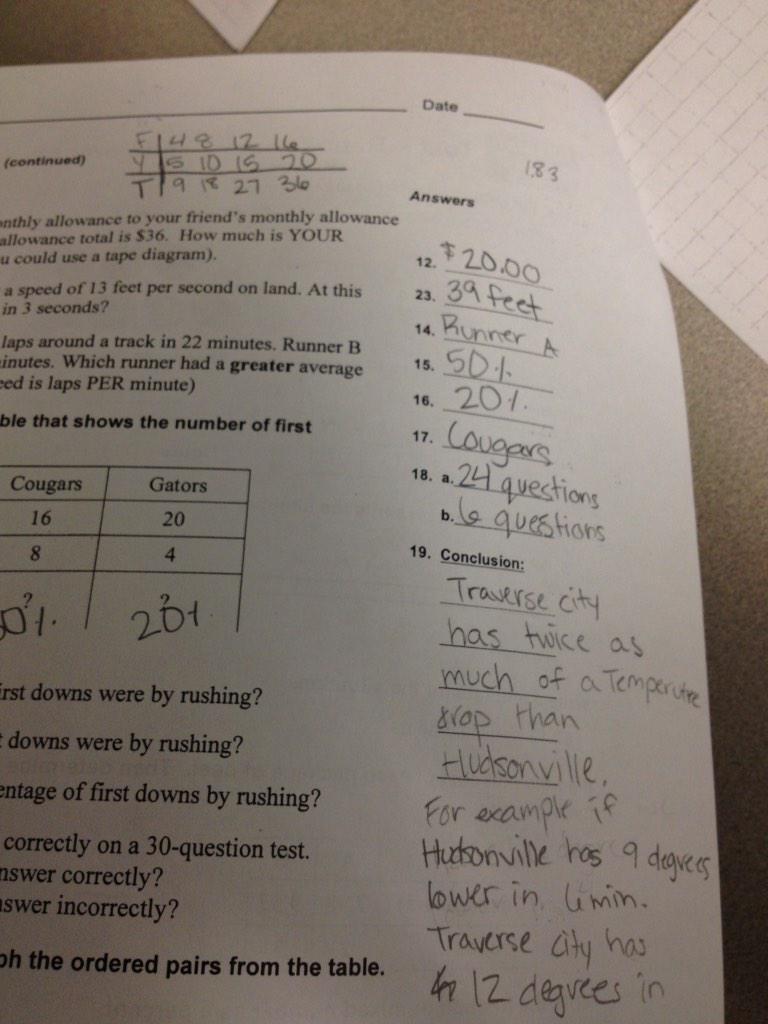 Date
F 4 8 12 16
(continued) Y 5 10 15 20
T 9 18 27 36
183
Answers
onthly allowance to your friend's monthly allowance
allowance total is $36. How much is YOUR
u could use a tape diagram).
a speed of 13 feet per second on land. At this
in 3 seconds?
laps around a track in 22 minutes. Runner B
inutes. Which runner had a greater average
eed is laps PER minute)
ble that shows the number of first
Cougars Gators
16 20
8 4
? ?
0%. 20%
irst downs were by rushing?
t downs were by rushing?
entage of first downs by rushing?
correctly on a 30-question test.
nswer correctly?
swer incorrectly?
ph the ordered pairs from the table.
12. $20.00
23. 39 feet
14. Runner A
15. 50%
16. 20%.
17. Cougars
18. a. 24 questions
b. 6 questions
19. Conclusion:
Traverse city
has twice as
much of a Temperutre
drop than
Hudsonville.
For example if
Hudsonville has 9 degrees
lower in min.
Traverse city has
12 degrees in